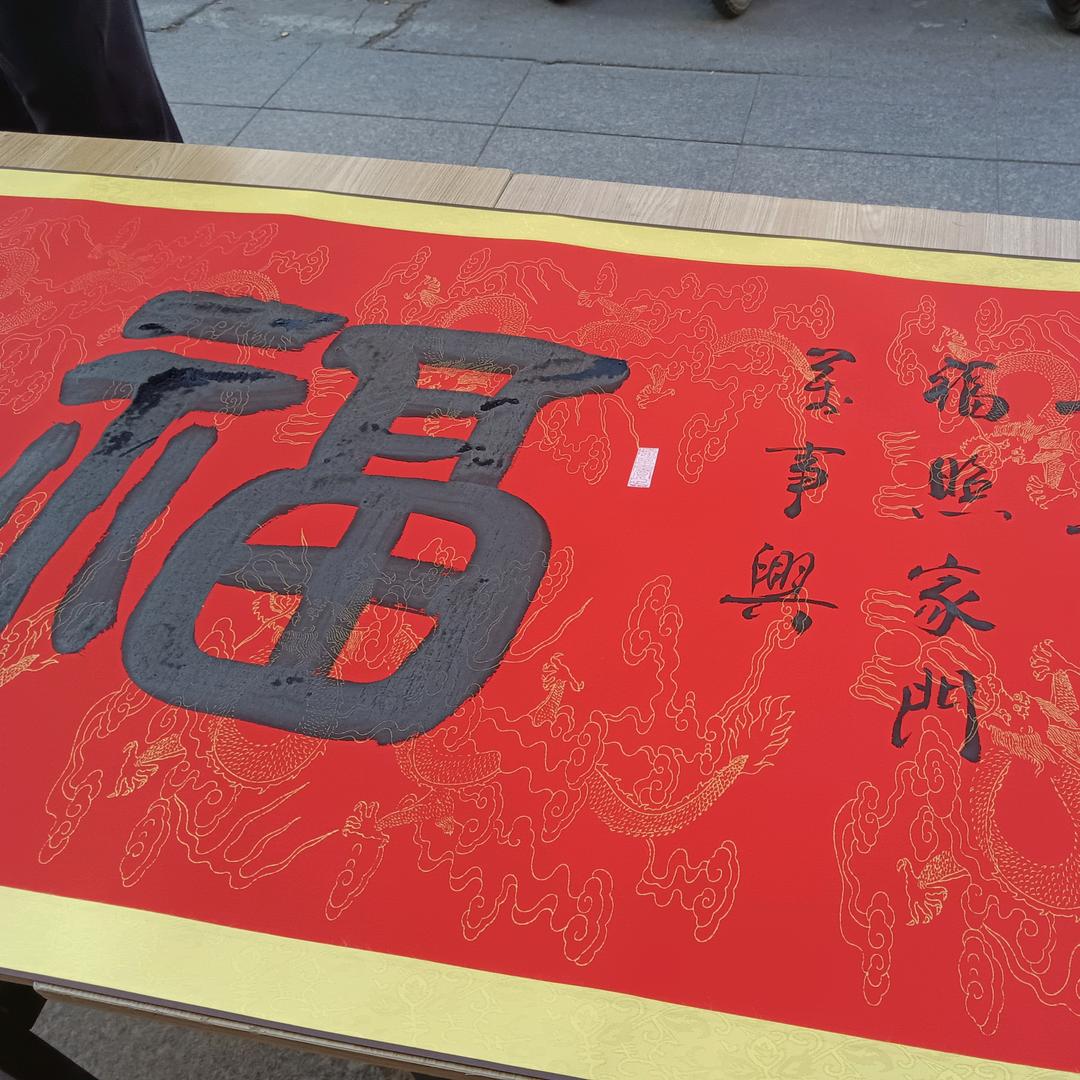 福照家門
萬事興
福